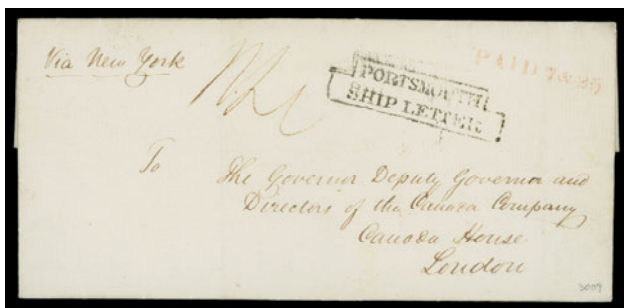 Via New York
PAID
PORTSMOUTH
SHIP LETTER
To The Governor Deputy Governor and
Directors of the Canada Company
Canada House
London